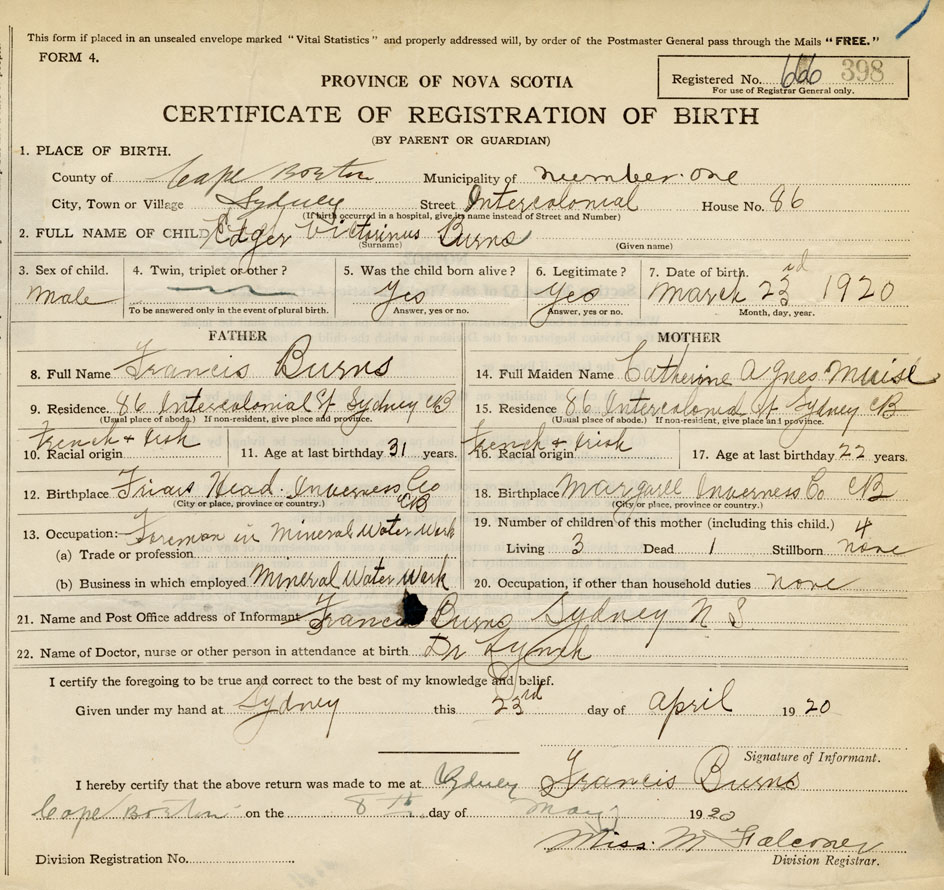 This form if placed in an unsealed envelope marked "Vital Statistics" and properly addressed will, by order of the Postmaster General pass through the Mails "FREE."
FORM 4.
PROVINCE OF NOVA SCOTIA
Registered No. 666 398
For use of Registrar General only.
CERTIFICATE OF REGISTRATION OF BIRTH
(BY PARENT OR GUARDIAN)
1. PLACE OF BIRTH.
County of Cape Breton Municipality of number one
City, Town or Village Sydney Street Intercolonial House No. 86
(If birth occurred in a hospital, give its name instead of Street and Number)
2. FULL NAME OF CHILD Edger Victorinus Burns
(Surname) (Given name)
3. Sex of child. 4. Twin, triplet or other? 5. Was the child born alive? 6. Legitimate? 7. Date of birth.
male Yes Yes March 23rd 1920
To be answered only in the event of plural birth. Answer, yes or no. Answer, yes or no. Month, day, year.
FATHER MOTHER
8. Full Name Francis Burns 14. Full Maiden Name Catherine Agnes Muise
9. Residence. 86 Intercolonial St Sydney CB 15. Residence 86 Intercolonial St Sydney CB
(Usual place of abode.) If non-resident, give place and province. (Usual place of abode.) If non-resident, give place and province.
10. Racial origin French + Irish 11. Age at last birthday 31 years. 16. Racial origin French + Irish 17. Age at last birthday 22 years.
12. Birthplace Friars Head. Inverness Co CB 18. Birthplace Margaree Inverness Co CB
(City or place, province or country.) (City or place, province or country.)
13. Occupation: Foreman in Mineral Water Work 19. Number of children of this mother (including this child.) 4
(a) Trade or profession Living 3 Dead 1 Stillborn none
(b) Business in which employed Mineral Water Work 20. Occupation, if other than household duties none
21. Name and Post Office address of Informant Francis Burns Sydney N S.
22. Name of Doctor, nurse or other person in attendance at birth Dr Lynch
I certify the foregoing to be true and correct to the best of my knowledge and belief.
Given under my hand at Sydney this 23rd day of April 1920
Signature of Informant.
I hereby certify that the above return was made to me at Sydney Francis Burns
Cape Breton on the 8th day of May 1920
Miss. M Falconer
Division Registration No. Division Registrar.